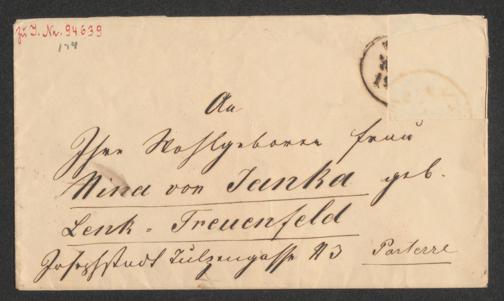 zu I. Nr. 94639
An
Ihre Wohlgeboren Frau
Nina von Janka geb.
Lenk - Treuenfeld
Josephstadt Tulzengasse N 3 Parterre